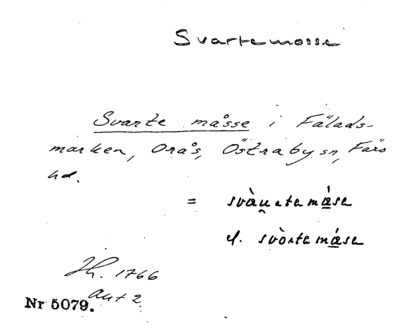 Svartemosse
Svarte måsse i Fälads-
marken, Orås, Östrabysn, Färs
hd.
= svàu̯ctemá̱se
el. svòrtemá̱se
Jh. 1766
ant 2
Nr 5079.